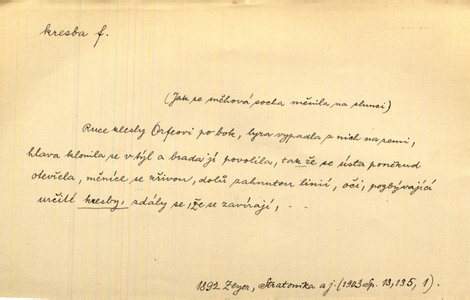 kresba f.
(Jak se sněhová socha měnila na slunci)
Ruce klesly Orfeovi po bok, lyra vypadla z nich na zemi,
hlava klonila se v týl a brada jí povolila, tak že se ústa poněkud
otevřela, měníce se křivou, dolů zahnutou linií, oči, pozbývající
určité kresby, zdály se, že se zavírají, . .
1892 Zeyer, Stratonika a j. (1903 Sp. 13, 135, 1).